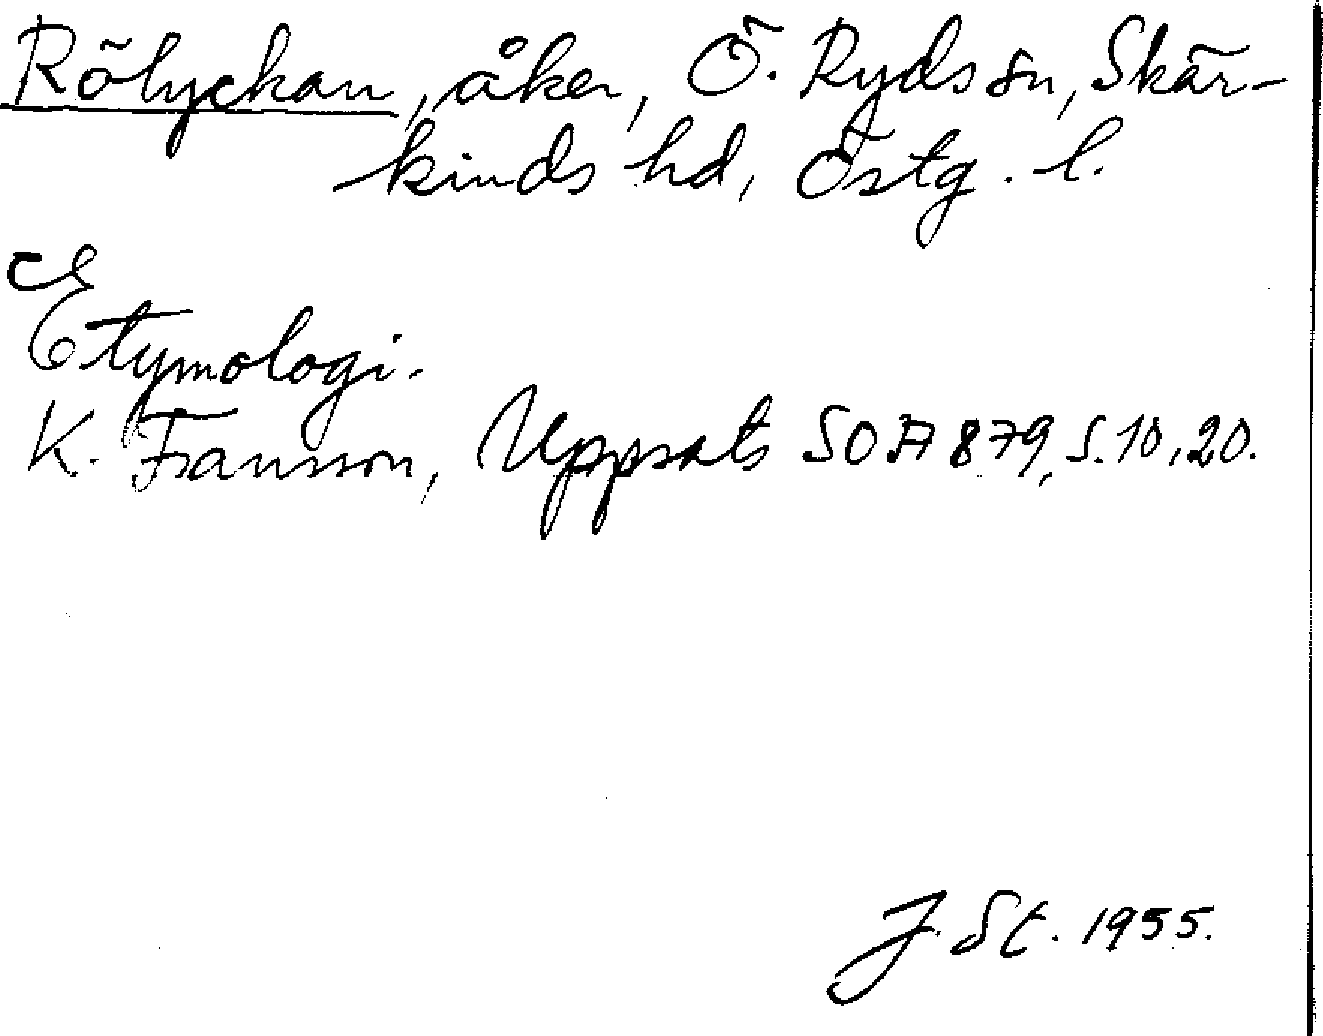 Rölyckan, åker, Ö. Ryds sn, Skär-
kinds hd, Östg. l.
Etymologi.
K. Fransson, Uppsats SOA 879, s. 10, 20.
J. St. 1955.